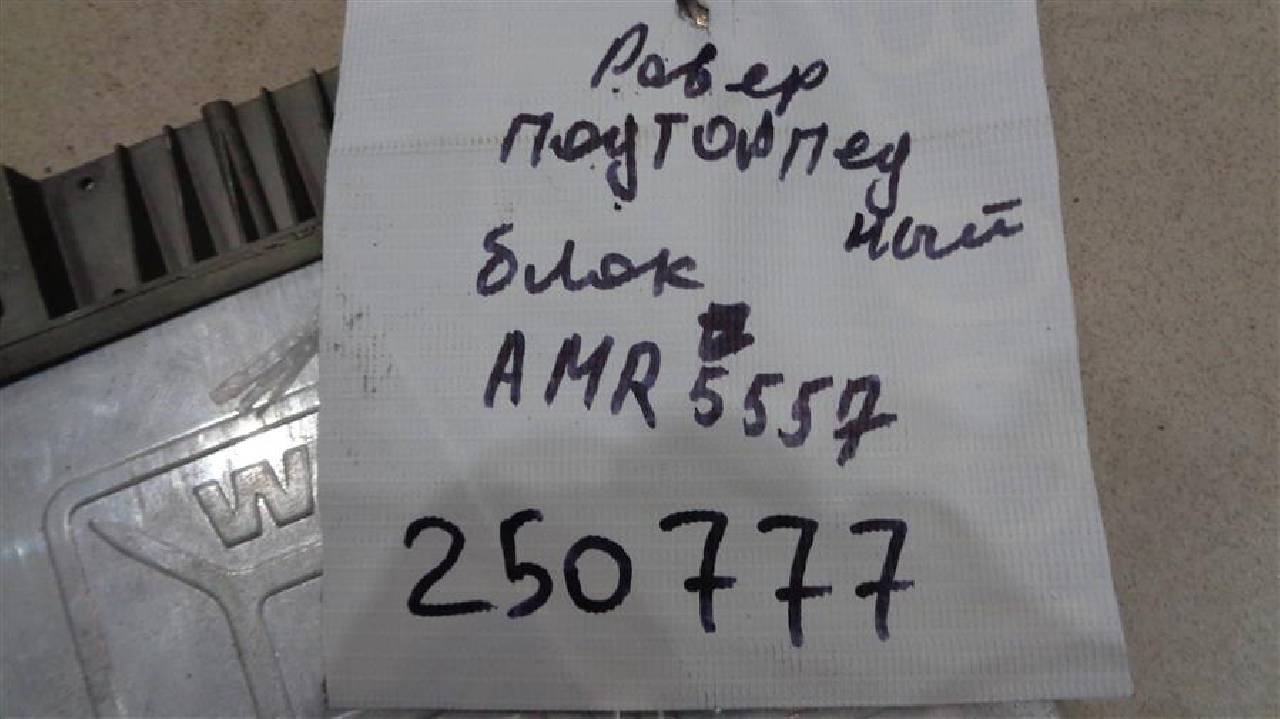 Ровер
подторпед
ный
блок
AMR 5557
250777
W